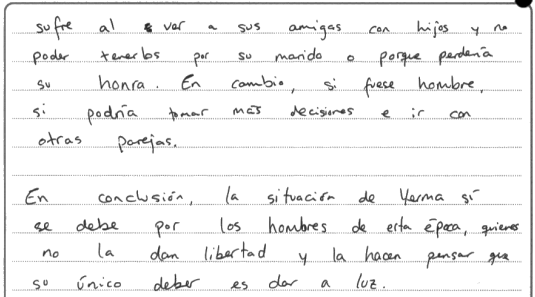 sufre al ver a sus amigas con hijos y no
poder tenerlos por su marido o porque perdería
su honra. En cambio, si fuese hombre,
si podría tomar más decisiones e ir con
otras parejas.
En conclusión, la situación de Yerma sí
se debe por los hombres de esta época, quienes
no la dan libertad y la hacen pensar que
su único deber es dar a luz.